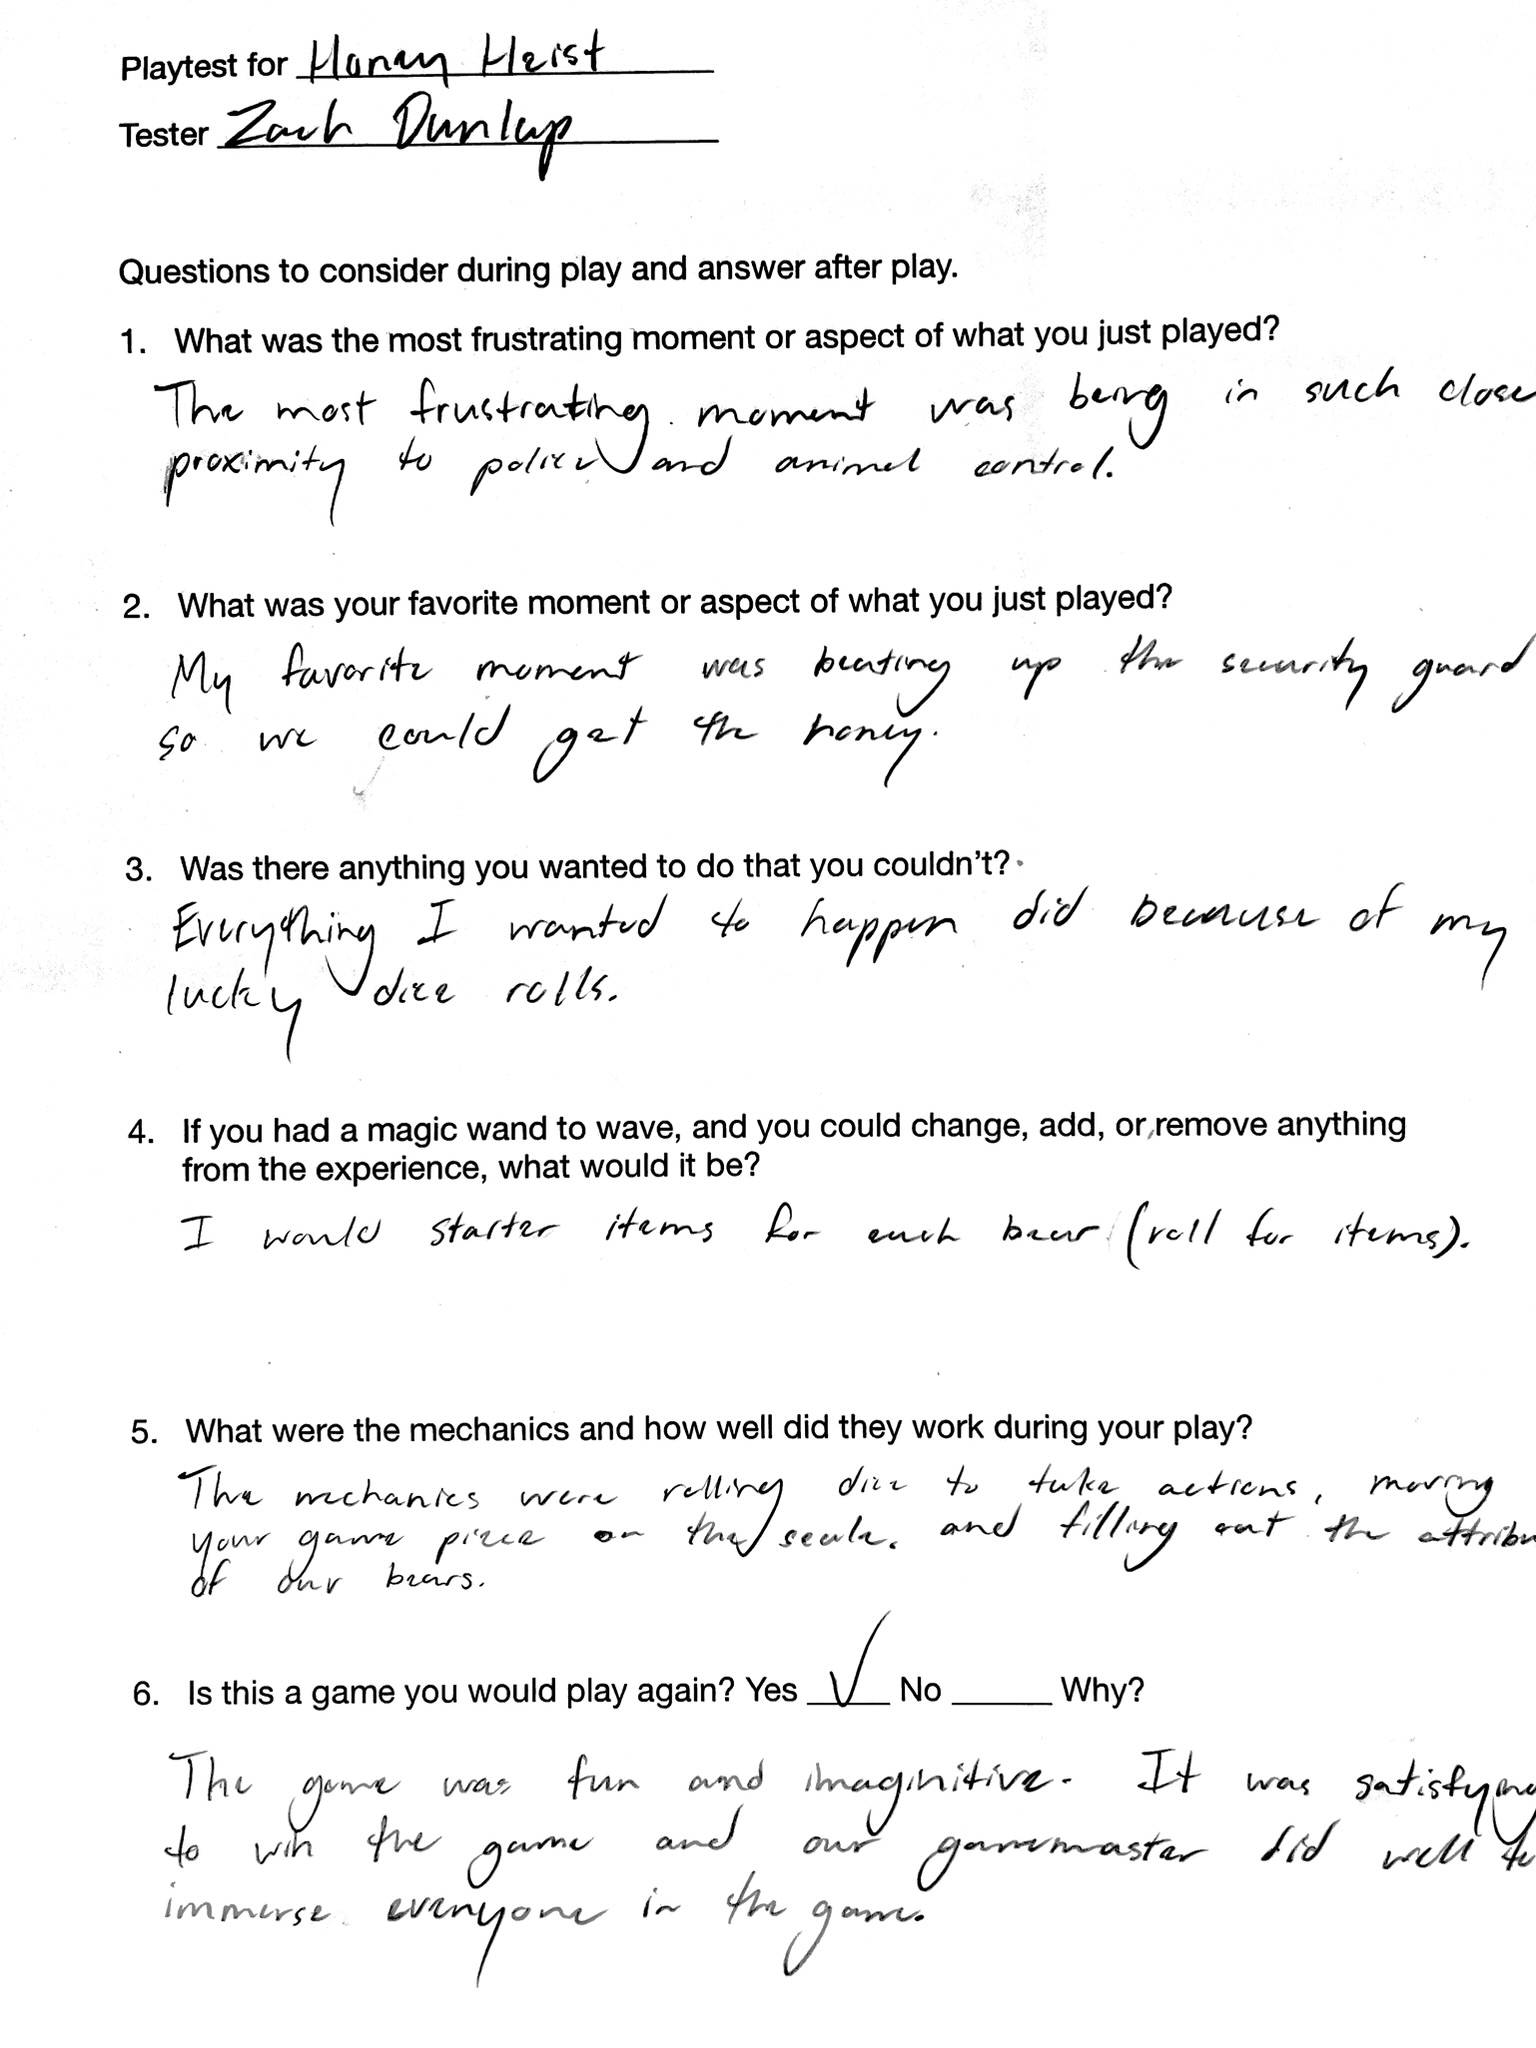 Playtest for Honey Heist
Tester Zach Dunlap
Questions to consider during play and answer after play.
1. What was the most frustrating moment or aspect of what you just played?
The most frustrating moment was being in such close
proximity to police and animal control.
2. What was your favorite moment or aspect of what you just played?
My favorite moment was beating up the security guard
so we could get the honey.
3. Was there anything you wanted to do that you couldn't?
Everything I wanted to happen did because of my
lucky dice rolls.
4. If you had a magic wand to wave, and you could change, add, or remove anything
from the experience, what would it be?
I would starter items for each bear (roll for items).
5. What were the mechanics and how well did they work during your play?
The mechanics were rolling dice to take actions, moving
your game piece on the scale, and filling out the attribu
of our bears.
6. Is this a game you would play again? Yes ✓ No _____ Why?
The game was fun and imaginitive. It was satisfying
to win the game and our gamemaster did well to
immerse everyone in the game.